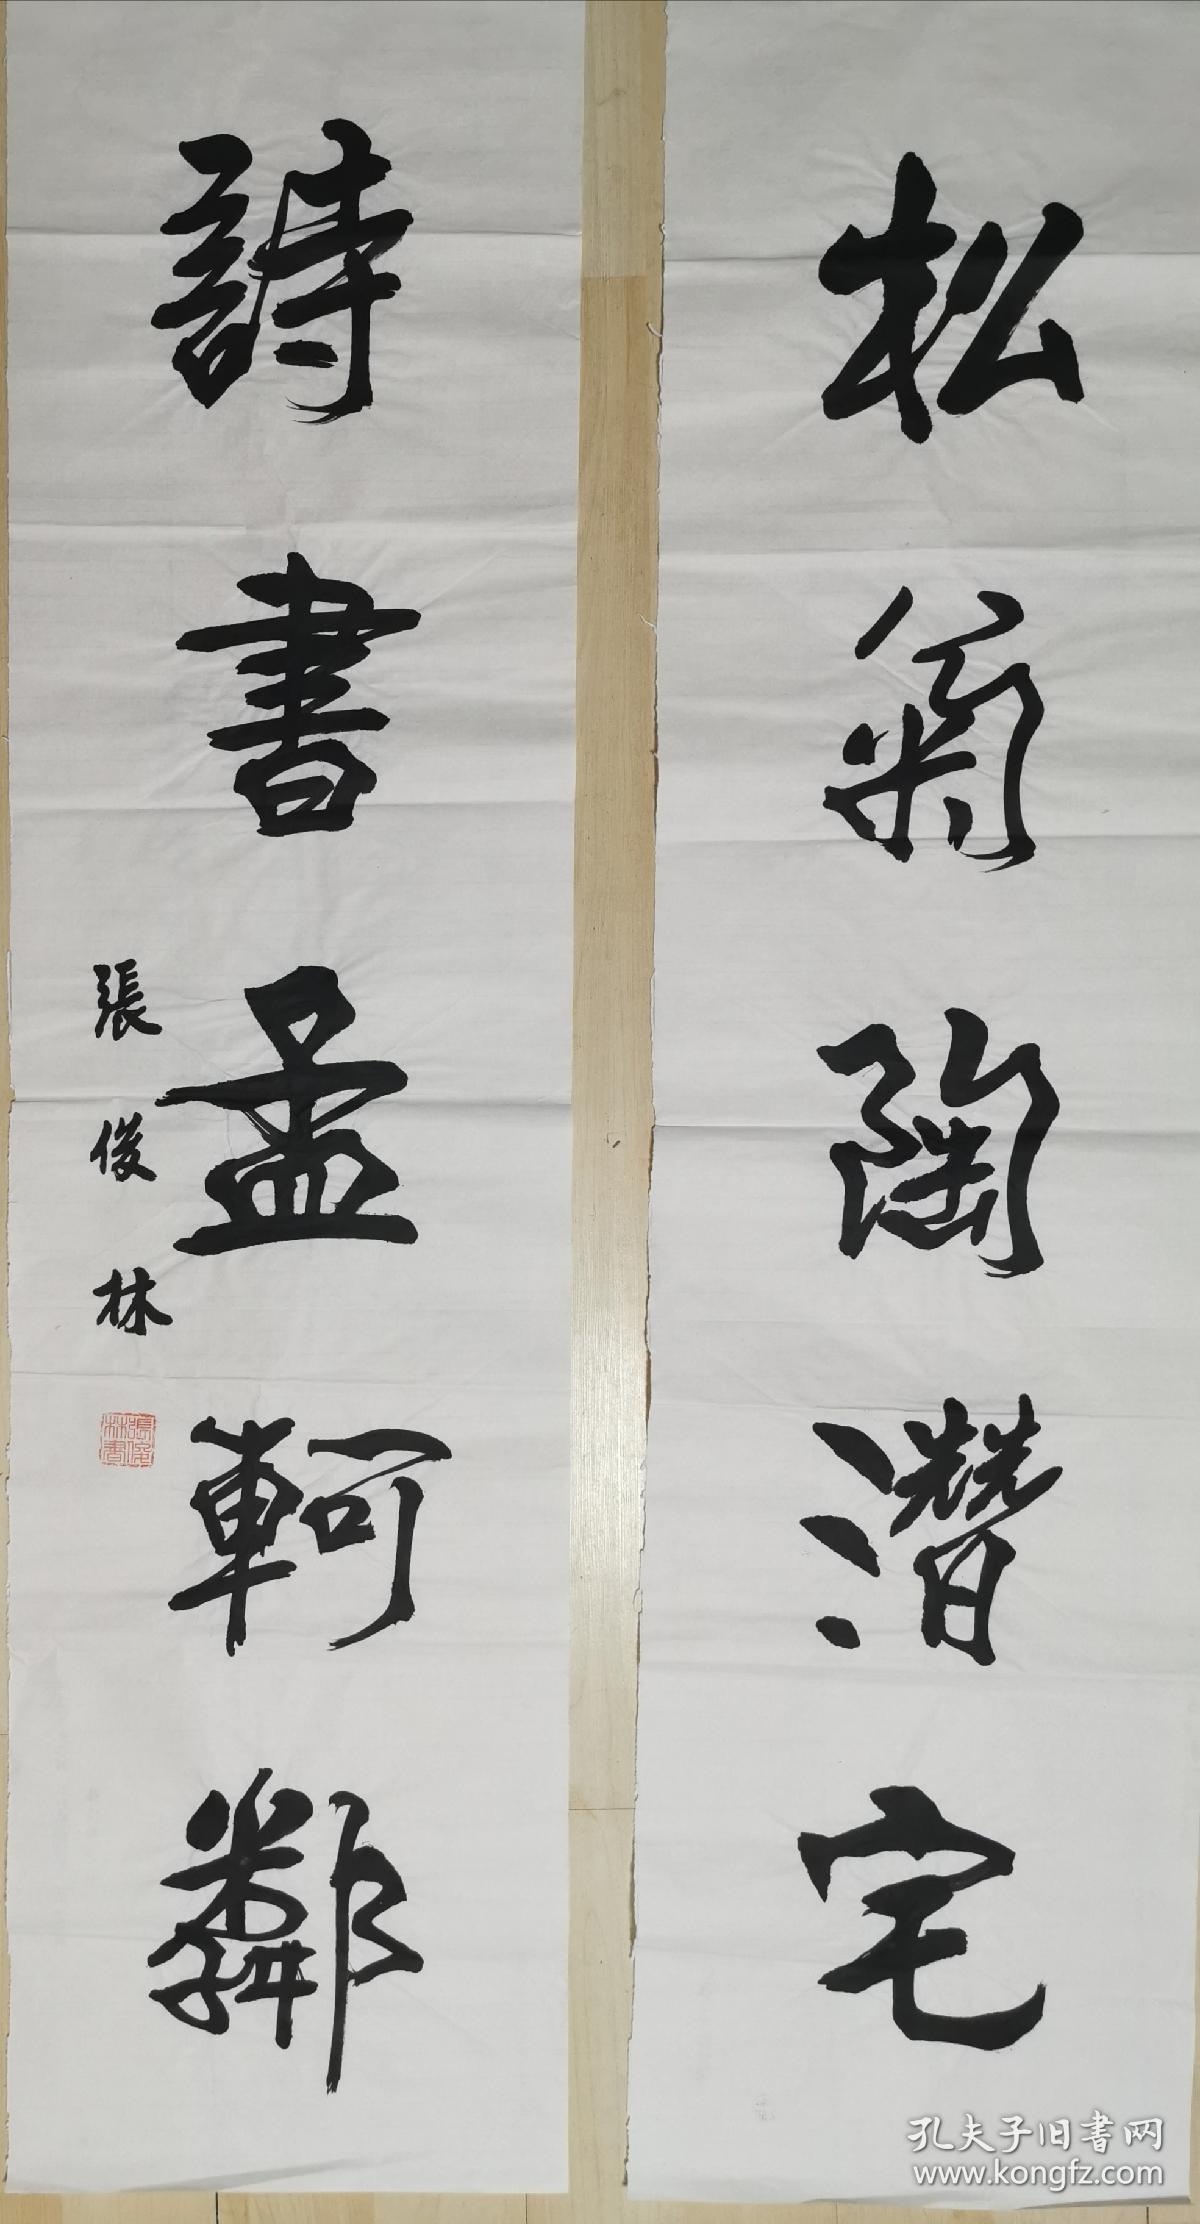 松氣陶潛宅
詩書孟軻鄰
張俊林
張俊林書
孔夫子旧書网
www.kongfz.com